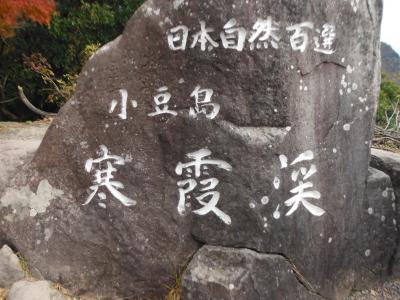 日本自然百選
小豆島
寒霞渓